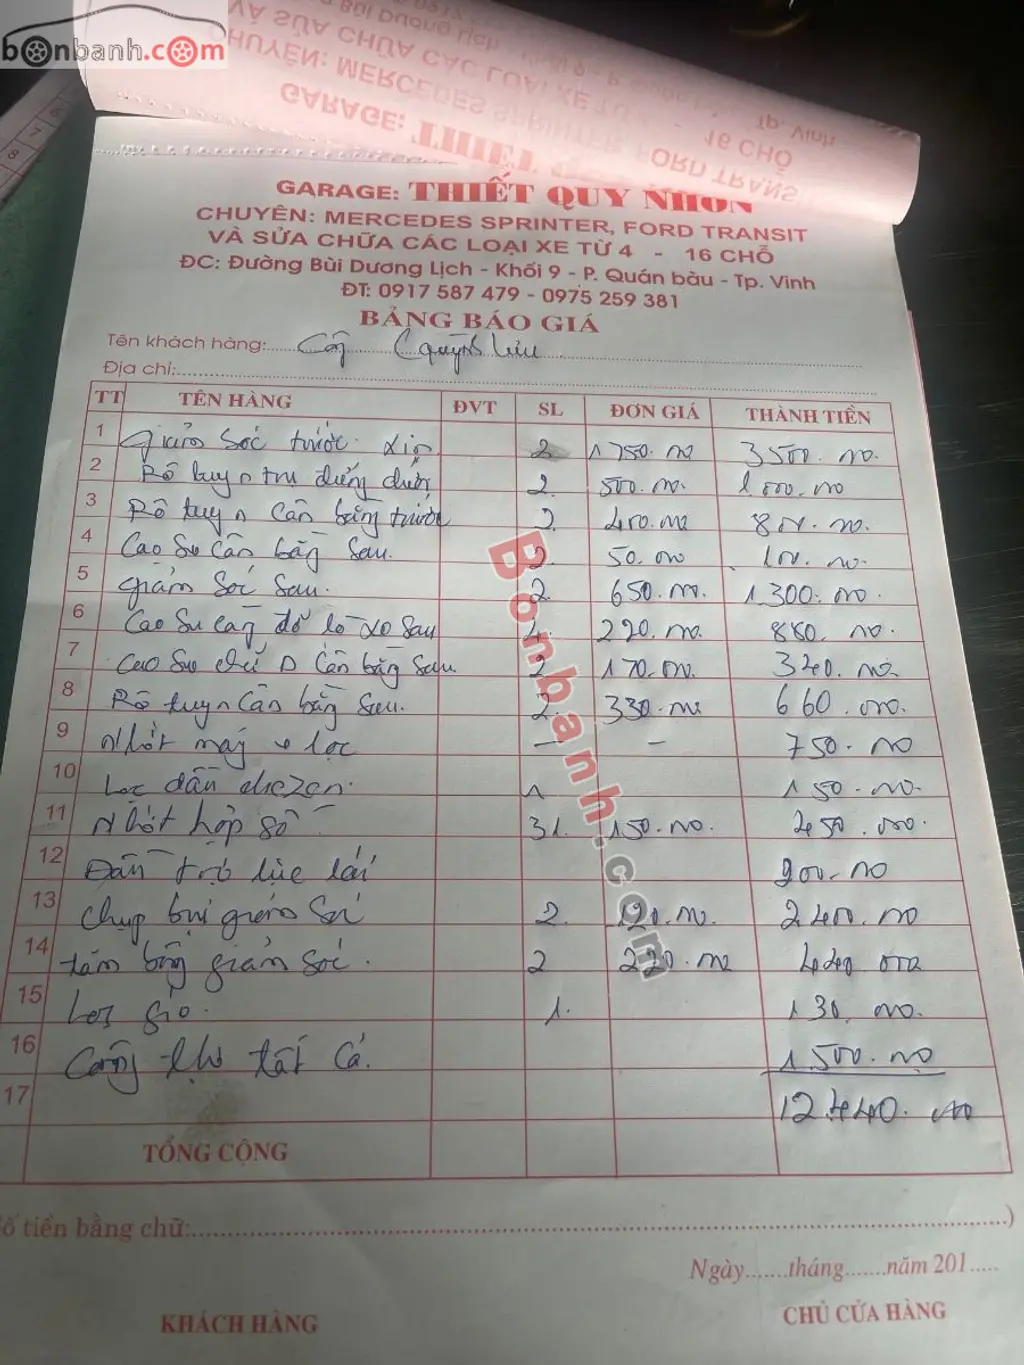 bonbanh.com
GARAGE: THIẾT QUY NHƠN
CHUYÊN: MERCEDES SPRINTER, FORD TRANSIT
VÀ SỬA CHỮA CÁC LOẠI XE TỪ 4 - 16 CHỖ
ĐC: Đường Bùi Dương Lịch - Khối 9 - P. Quán bàu - Tp. Vinh
ĐT: 0917 587 479 - 0975 259 381
BẢNG BÁO GIÁ
Tên khách hàng: C Quỳnh Lưu
Địa chỉ:
TT TÊN HÀNG ĐVT SL ĐƠN GIÁ THÀNH TIỀN
1 Giảm sóc trước 2 1750.000 3500.000
2 Rô tuyn trụ đứng dưới 2 500.000 1000.000
3 Rô tuyn Cân bằng trước 2 400.000 800.000
4 Cao Su Cân bằng Sau. 2 50.000 100.000
5 Giảm Sóc Sau. 2 650.000 1.300.000
6 Cao Su càng đỡ lò xo Sau 4 220.000 880.000
7 Cao Su chữ D Cân bằng Sau. 2 170.000 340.000
8 Rô tuyn Cân bằng Sau. 2 330.000 660.000
9 Nhớt máy + lọc - - 750.000
10 Lọc dầu diezen. 1 150.000
11 Nhớt hộp số 3l. 150.000. 450.000
12 Dầu trợ lực lái 200.000
13 Chụp bụi giảm Sóc 2 120.000. 2400.000
14 tăm bông giảm sóc. 2 220.000 440.000
15 Lọc gió. 1. 130.000.
16 Công thợ tất cả. 1.500.000
17 12.440.000
TỔNG CỘNG
Bonbanh.com
Số tiền bằng chữ: )
Ngày.......tháng.......năm 201.....
KHÁCH HÀNG CHỦ CỬA HÀNG